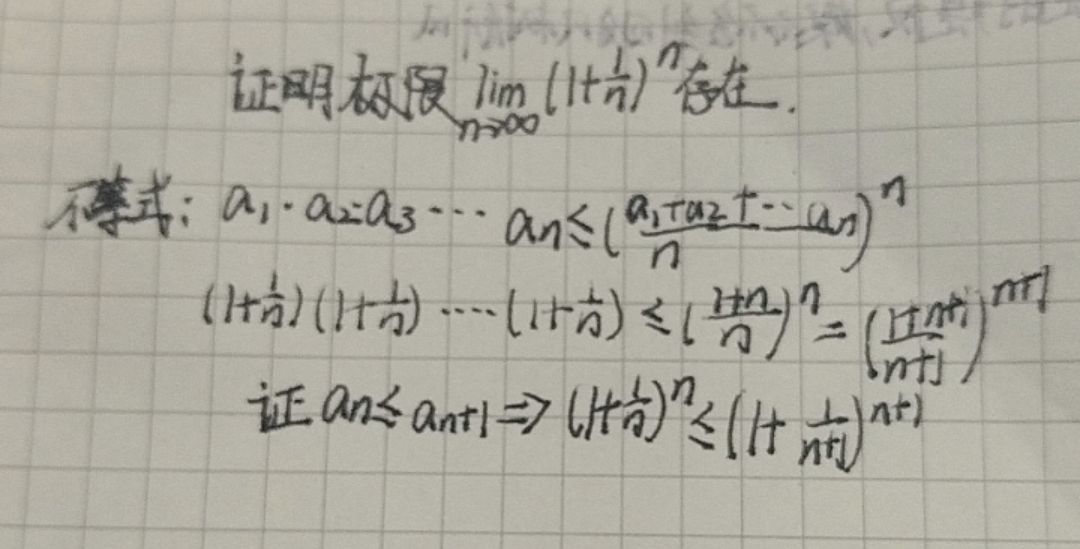 证明极限 lim n→∞ (1+1/n)^n 存在.
不等式: a₁·a₂·a₃⋯aₙ≤((a₁+a₂+⋯aₙ)/n)^n
(1+1/n)(1+1/n)⋯(1+1/n)≤((1+n)/n)^n=((1+n+1)/(n+1))^(n+1)
证 aₙ≤aₙ₊₁⇒(1+1/n)^n≤(1+1/(n+1))^(n+1)